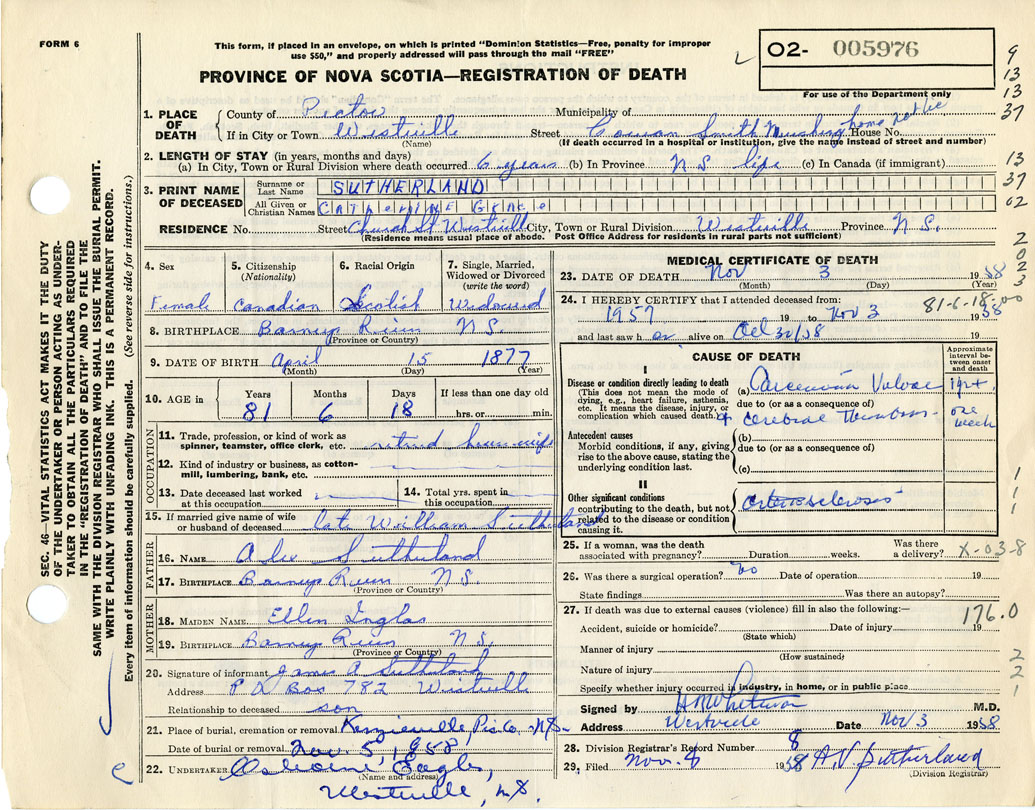 FORM 6
This form, if placed in an envelope, on which is printed "Dominion Statistics—Free, penalty for improper
use $50," and properly addressed will pass through the mail "FREE"
PROVINCE OF NOVA SCOTIA—REGISTRATION OF DEATH
O2- 005976
For use of the Department only
9
13
13
37
13
37
02
2
0
2
3
1. PLACE OF DEATH
County of Pictou Municipality of
If in City or Town Westville Street Cowan Smith Nursing home House No.
(Name) (If death occurred in a hospital or institution, give the name instead of street and number)
2. LENGTH OF STAY (in years, months and days)
(a) In City, Town or Rural Division where death occurred 6 years (b) In Province N S life (c) In Canada (if immigrant)
3. PRINT NAME OF DECEASED
Surname or Last Name SUTHERLAND
All Given or Christian Names CATHERINE GRACE
RESIDENCE No. Street Church St Westville City, Town or Rural Division Westville Province N S.
(Residence means usual place of abode. Post Office Address for residents in rural parts not sufficient)
4. Sex
Female
5. Citizenship (Nationality)
Canadian
6. Racial Origin
Scotish
7. Single, Married, Widowed or Divorced (write the word)
Widowed
8. BIRTHPLACE Barneys River N S.
(Province or Country)
9. DATE OF BIRTH April 15 1877
(Month) (Day) (Year)
10. AGE in
Years Months Days If less than one day old
81 6 18 hrs. or min.
OCCUPATION
11. Trade, profession, or kind of work as
spinner, teamster, office clerk, etc. retired house wife
12. Kind of industry or business, as cotton-
mill, lumbering, bank, etc.
13. Date deceased last worked
at this occupation
14. Total yrs. spent in
this occupation
15. If married give name of wife
or husband of deceased Late William Sutherland
FATHER
16. NAME Alex Sutherland
17. BIRTHPLACE Barneys River N S.
(Province or Country)
MOTHER
18. MAIDEN NAME Ellen Inglas
19. BIRTHPLACE Barneys River N S.
(Province or Country)
20. Signature of informant James A Sutherland
Address P O Box 782 Westville
Relationship to deceased son
21. Place of burial, cremation or removal Kenzieville, Pic Co. N.S.
Date of burial or removal Nov. 5, 1958
22. UNDERTAKER Osborne Eagles,
(Name and address)
Westville, N.S.
MEDICAL CERTIFICATE OF DEATH
23. DATE OF DEATH Nov 3 1958
(Month) (Day) (Year)
24. I HEREBY CERTIFY that I attended deceased from: 81-6-18-00
1957 19 to Nov 3 1958
and last saw h er alive on Oct 30/58 19
CAUSE OF DEATH
Approximate interval between onset and death
I
Disease or condition directly leading to death
(This does not mean the mode of
dying, e.g., heart failure, asthenia,
etc. It means the disease, injury, or
complication which caused death.)
(a) Carcinoma Vulvae 1 yr +
due to (or as a consequence of)
+ cerebral Thrombosis one week
Antecedent causes
Morbid conditions, if any, giving
rise to the above cause, stating the
underlying condition last.
(b)
due to (or as a consequence of)
(c)
II
Other significant conditions
contributing to the death, but not
related to the disease or condition
causing it.
arteriosclerosis
1
1
1
25. If a woman, was the death
associated with pregnancy? Duration weeks. Was there
a delivery? X-03-8
26. Was there a surgical operation? no Date of operation 19
State findings Was there an autopsy?
27. If death was due to external causes (violence) fill in also the following:—
176.0
Accident, suicide or homicide? Date of injury 19
(State which)
Manner of injury
(How sustained)
Nature of injury
Specify whether injury occurred in industry, in home, or in public place
2
2
1
Signed by H M Whitman M.D.
Address Westville Date Nov 3 1958
28. Division Registrar's Record Number 8
29. Filed Nov. 8 1958 A. V. Sutherland
(Division Registrar)
SEC. 46—VITAL STATISTICS ACT MAKES IT THE DUTY
OF THE UNDERTAKER OR PERSON ACTING AS UNDER-
TAKER TO OBTAIN ALL THE PARTICULARS REQUIRED
IN THE "REGISTRATION OF DEATH" AND TO FILE THE
SAME WITH THE DIVISION REGISTRAR WHO SHALL ISSUE THE BURIAL PERMIT.
WRITE PLAINLY WITH UNFADING INK. THIS IS A PERMANENT RECORD.
Every item of information should be carefully supplied. (See reverse side for instructions.)